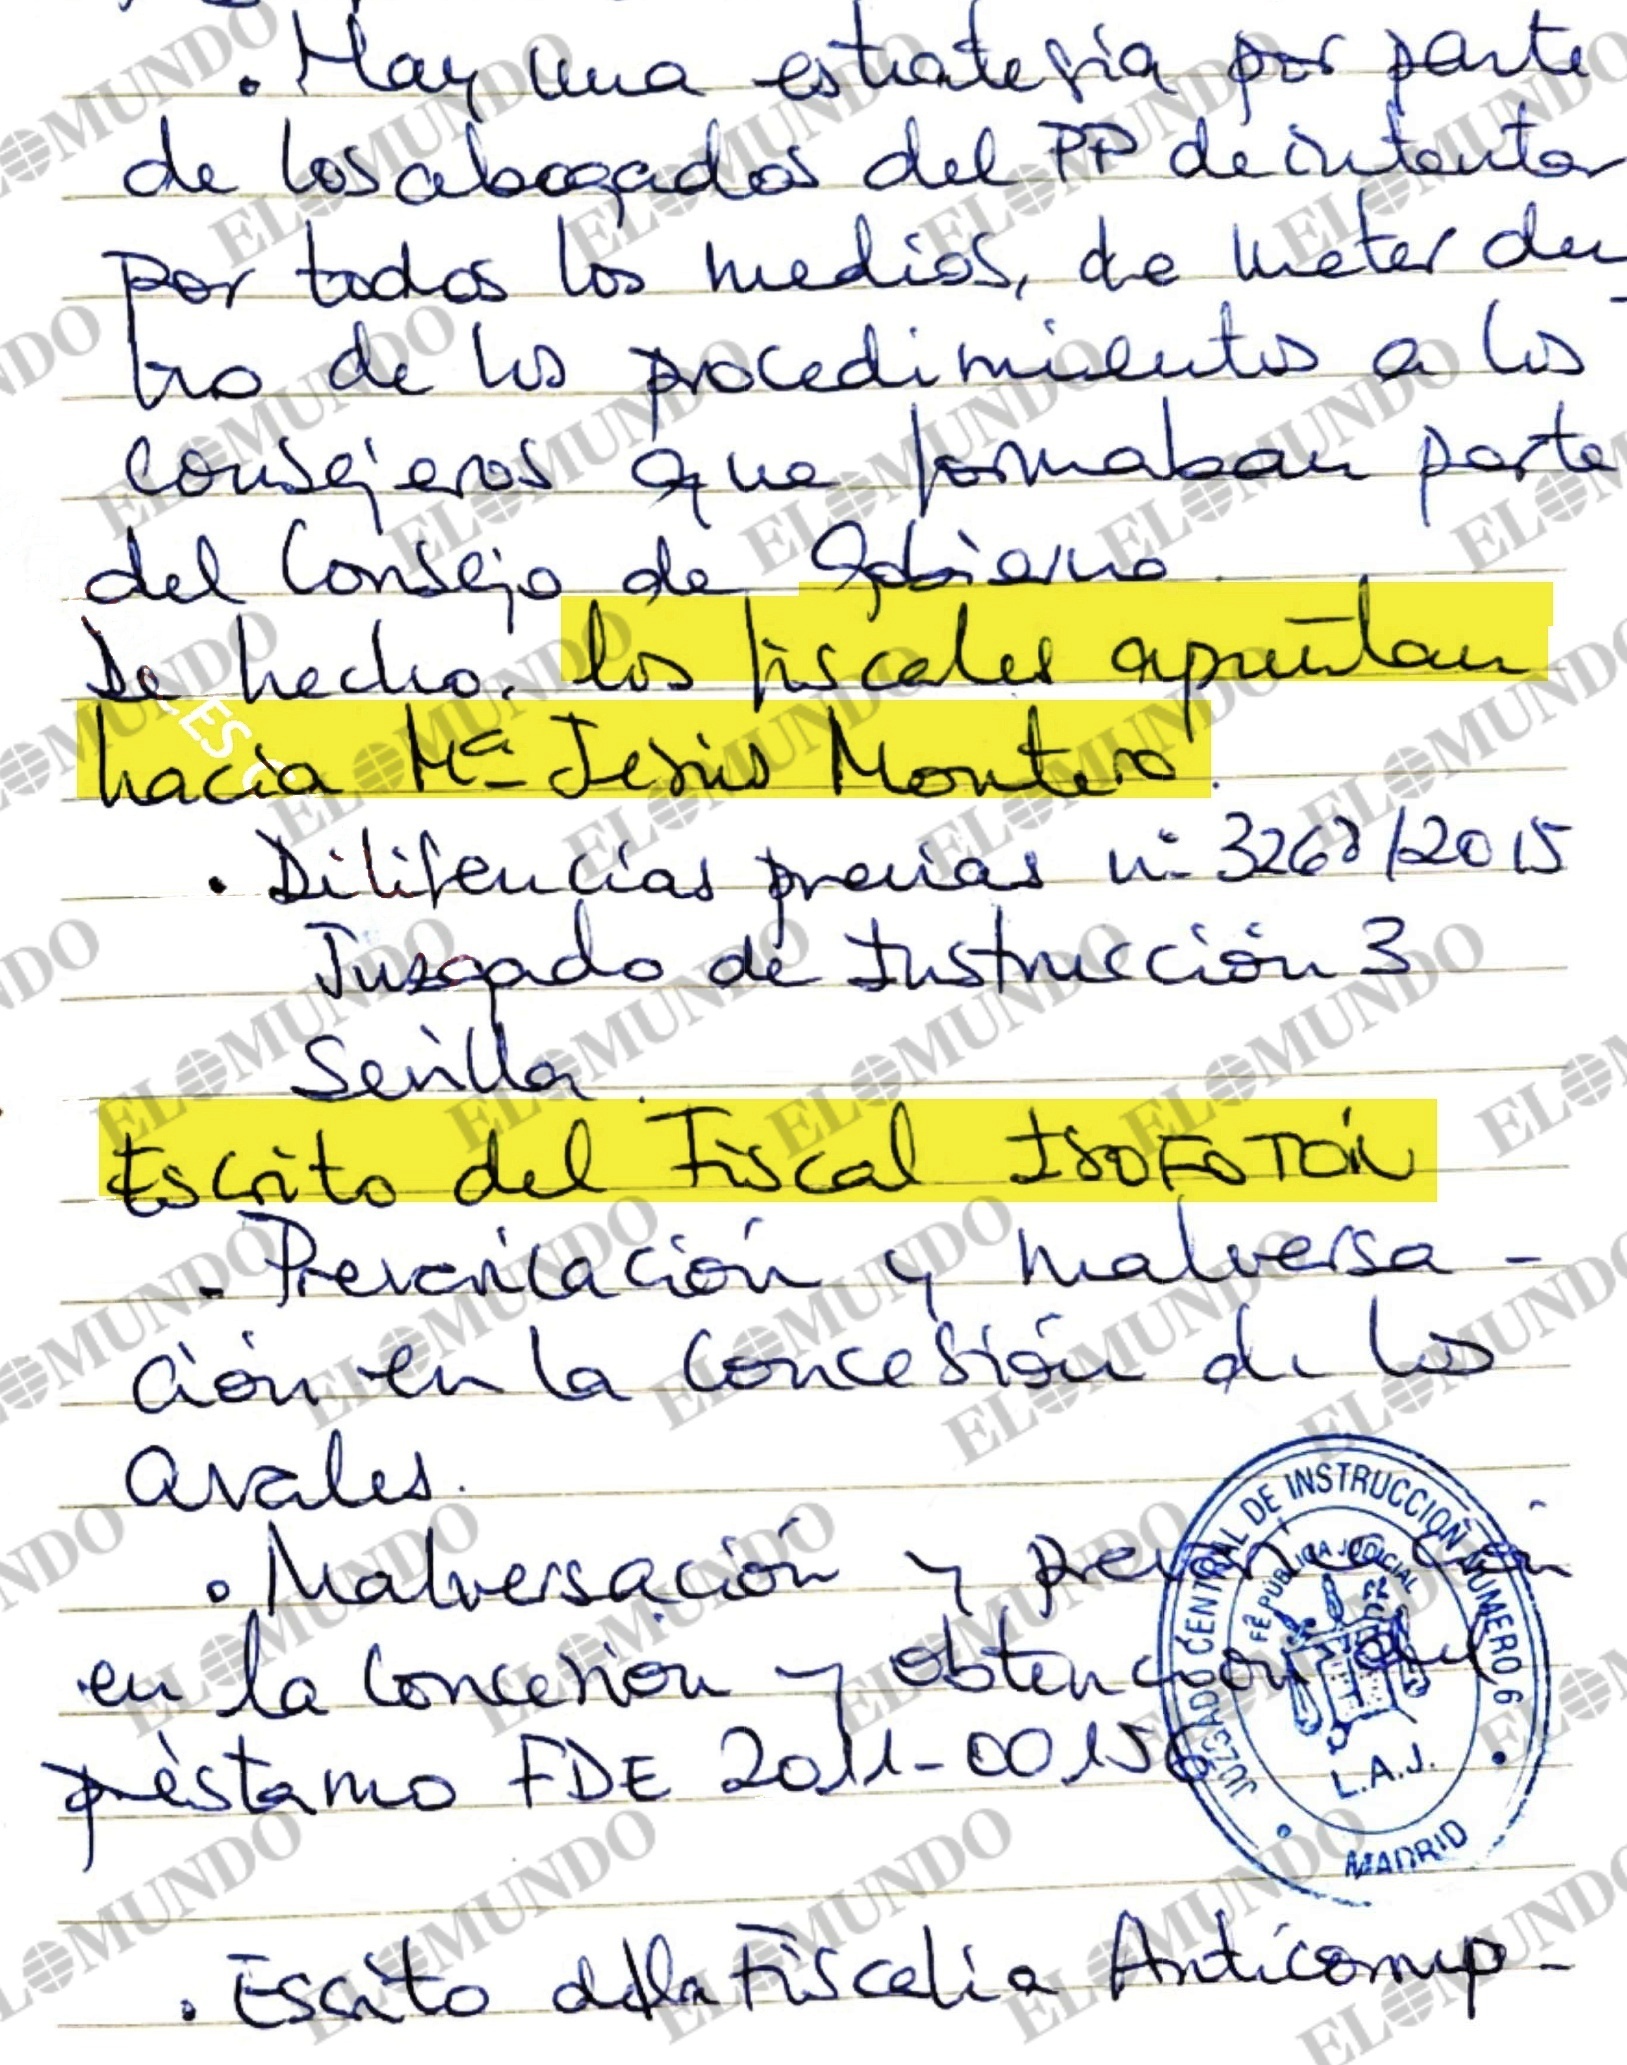 . Hay una estrategia por parte
de los abogados del PP de intentar
por todos los medios, de meter den
tro de los procedimientos a los
consejeros que formaban parte
del Consejo de Gobierno.
De hecho, los fiscales apuntan
hacia Mª Jesús Montero.
. Diligencias previas nº 3268/2015
Juzgado de Instrucción 3
Sevilla.
Escrito del Fiscal ISOFOTÓN
- Prevaricación y malversa-
ción en la concesión de los
avales.
. Malversación y prevaricación
en la concesión y obtención del
préstamo FDE 2011-00156
. Escrito de la Fiscalía Anticorrup-
JUZGADO CENTRAL DE INSTRUCCIÓN NUMERO 6
FÉ PÚBLICA JUDICIAL
L.A.J.
MADRID
EL MUNDO